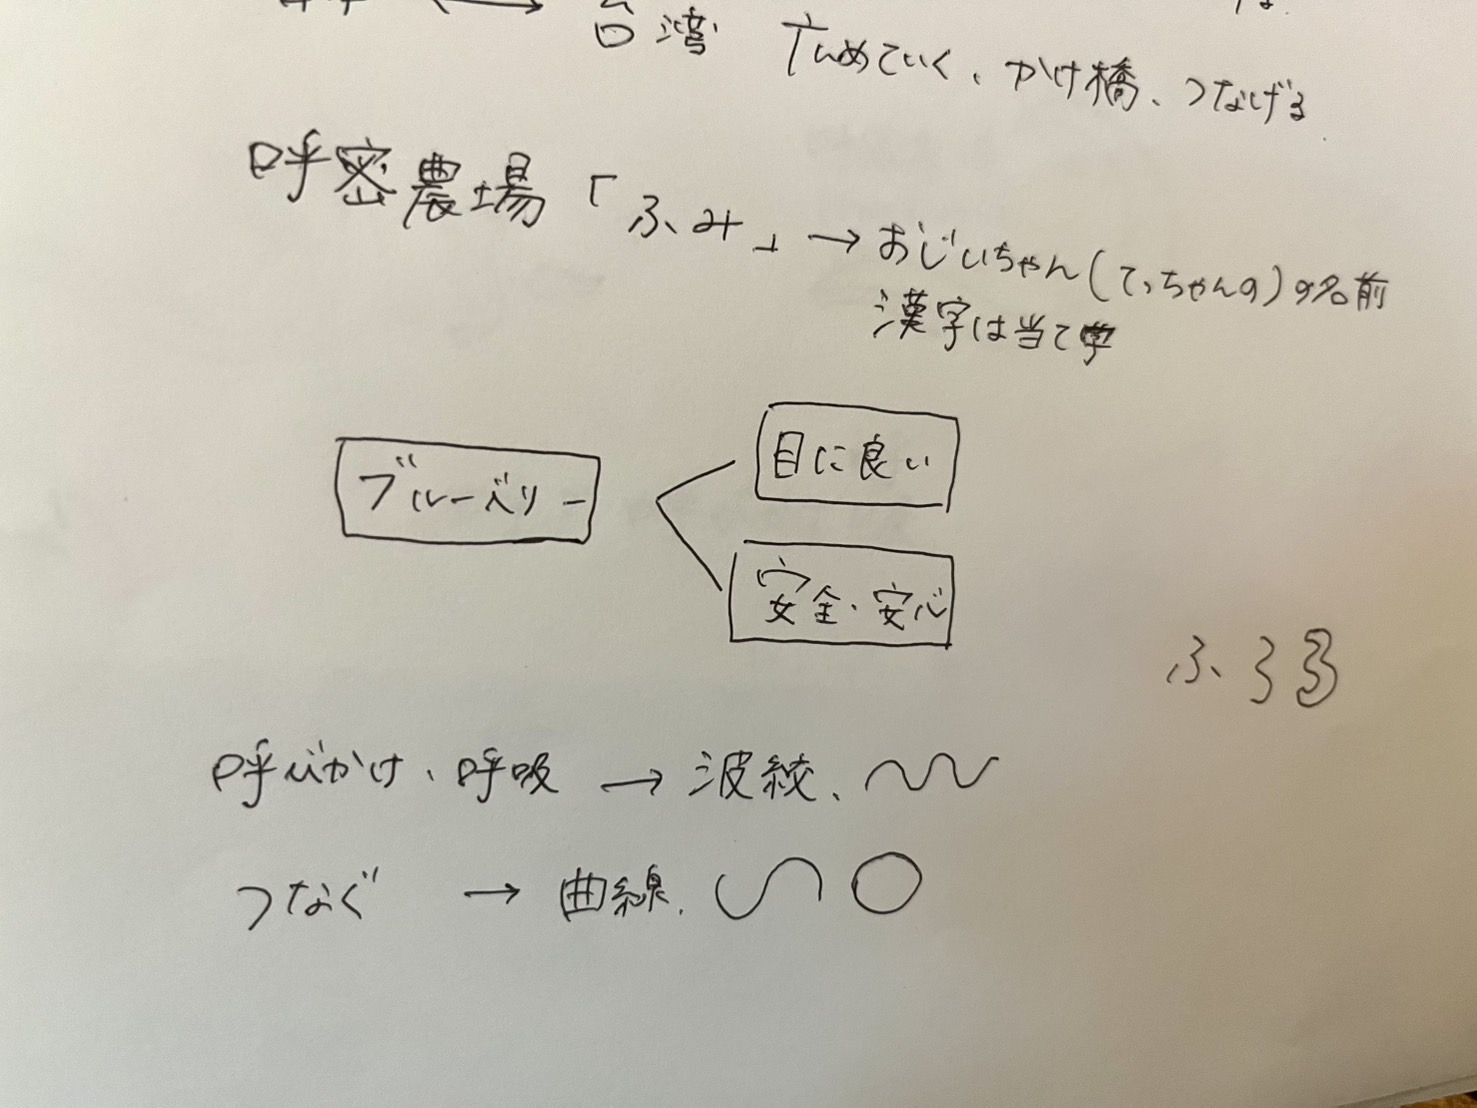 台湾 広めていく、かけ橋、つなげる
呼密農場「ふみ」→おじいちゃん(てっちゃんの)の名前
漢字は当て字
ブルーベリー
目に良い
安全・安心
ふ
呼びかけ、呼吸 → 波紋、
つなぐ → 曲線、